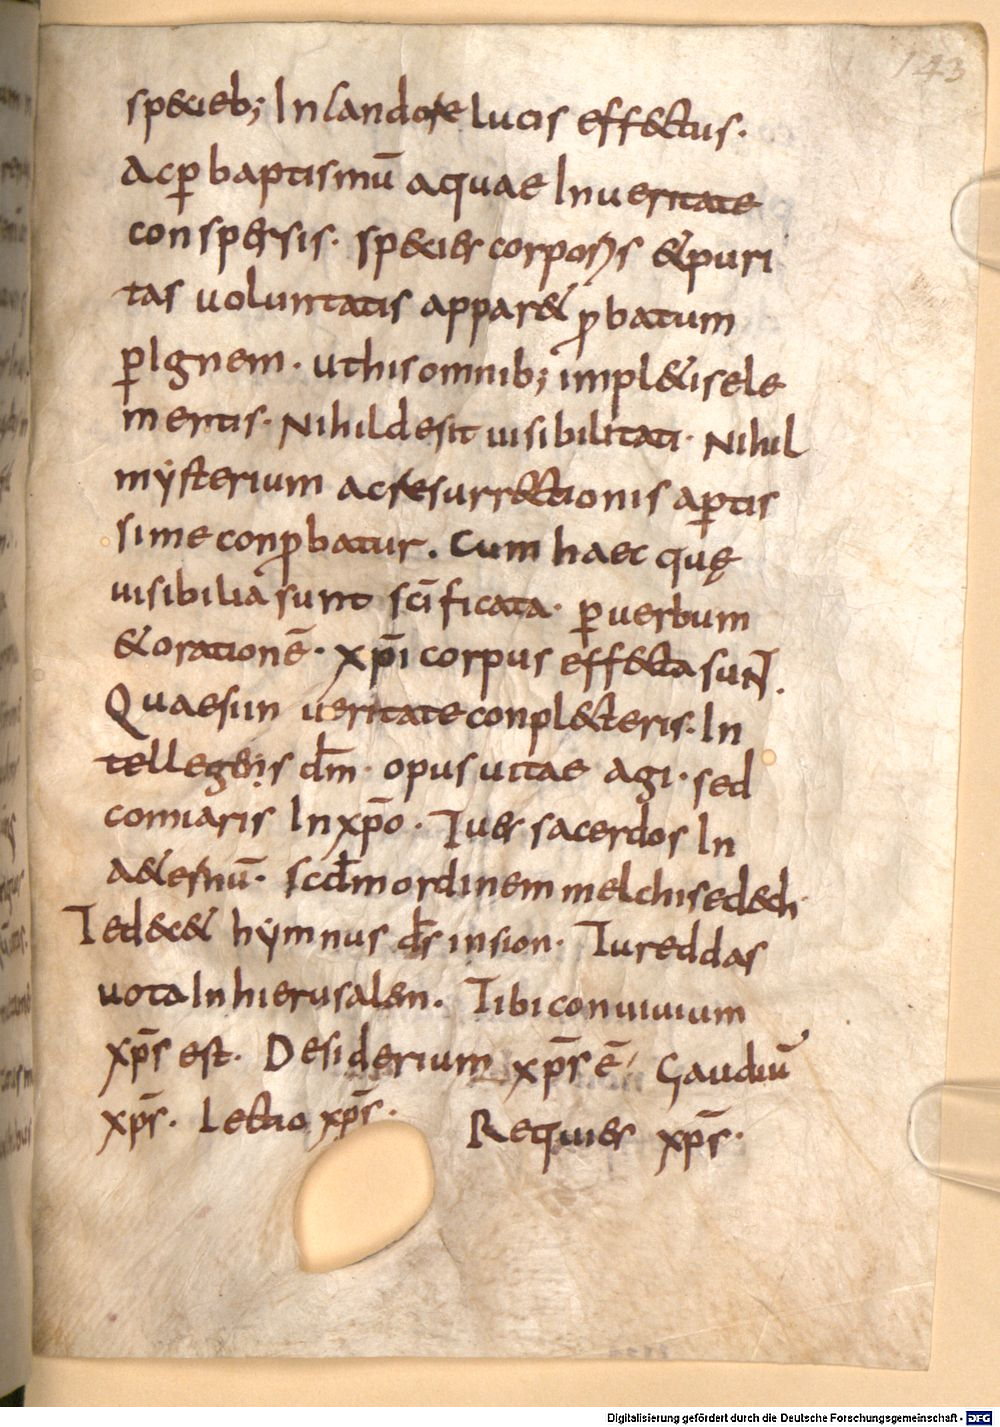 143
sp&ieb; In candore lucis eff&tus·
Ac ꝑ baptismū aquae In ueritate
conspersis· sp&ies corporis & puri
tas uoluntatis appar& ꝓbatum
ꝑ Ignem· ut his omnib; impl&is ele
mentis· Nihil desit uisibilitati· Nihil
mẏsterium ac resurr&tionis aptis
sime conꝓbatur. Cum haec quę
uisibilia sunt sc̄ificata· ꝑ uerbum
& orationē· xp̄i corpus eff&ta sunt.
Quaesun ueritate conpl&teris· In
tellegens dm̄· opus uitae agi· sed
conuiaris In xp̄o· Tu es sacerdos In
a&ernū· scdm̄ ordinem melchised&h·
Te dec& hẏmnus ds̄ in sion· Tu reddas
uota In hierusalem. Tibi conuiuium
xp̄s est· Desiderium xp̄s ē· Gaudiū
xp̄s· Lectio xp̄s· Requies xp̄s·
Digitalisierung gefördert durch die Deutsche Forschungsgemeinschaft - DFG